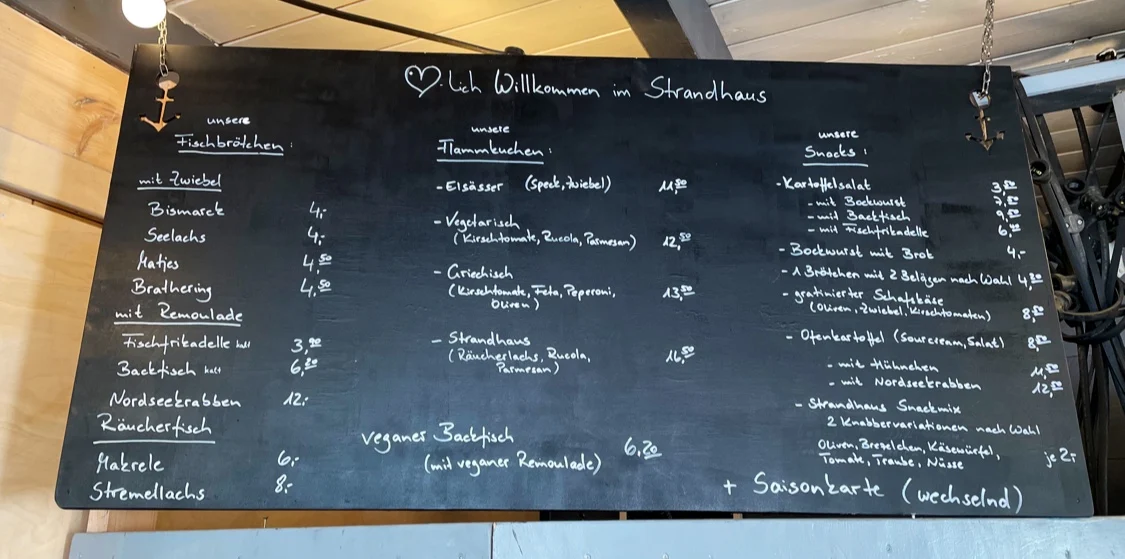 ♡-lich Willkommen im Strandhaus
unsere
Fischbrötchen:
mit Zwiebel
Bismarck 4,-
Seelachs 4,-
Matjes 4,50
Brathering 4,50
mit Remoulade
Fischfrikadelle kalt 3,90
Backfisch kalt 6,20
Nordseekrabben 12,-
Räucherfisch
Makrele 6,-
Stremellachs 8,-
unsere
Flammkuchen:
- Elsässer (Speck, Zwiebel) 11,50
- Vegetarisch
(Kirschtomate, Rucola, Parmesan) 12,50
- Griechisch
(Kirschtomate, Feta, Peperoni, 13,50
Oliven)
- Strandhaus
(Räucherlachs, Rucola, 16,50
Parmesan)
veganer Backfisch 6,20
(mit veganer Remoulade)
unsere
Snacks:
- Kartoffelsalat
- mit Bockwurst
- mit Backfisch
- mit Fischfrikadelle
- Bockwurst mit Brot 4,-
- 1 Brötchen mit 2 Belägen nach Wahl
- gratinierter Schafskäse
(Oliven, Zwiebel, Kirschtomaten)
- Ofenkartoffel (Sourcream, Salat)
- mit Hühnchen
- mit Nordseekrabben
- Strandhaus Snackmix
2 Knabbervariationen nach Wahl
Oliven, Brezelchen, Käsewürfel, je 2,-
Tomate, Traube, Nüsse
+ Saisonkarte (wechselnd)